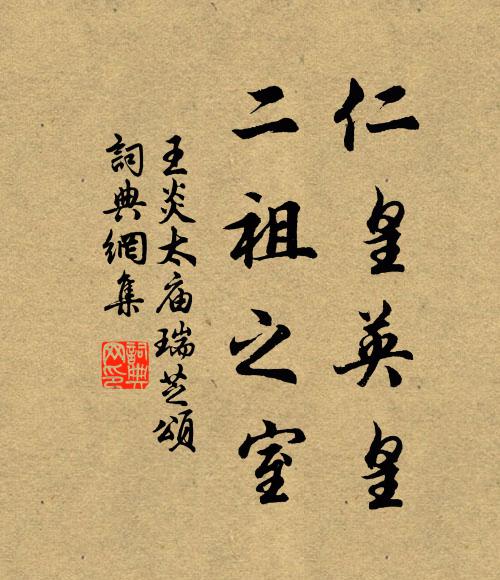 仁皇英皇
二祖之室
王炎太庙瑞芝頌
詞典網集
詞典网印